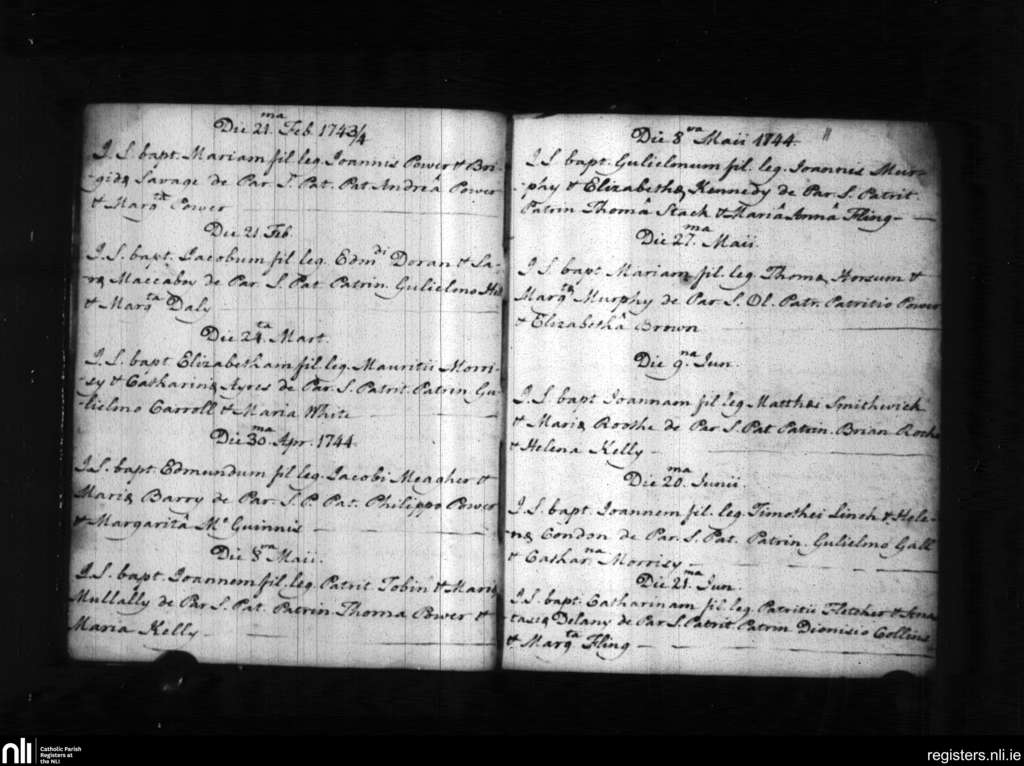 Die 21.ma Feb. 1743/4
I.S. bapt. Mariam fil leg. Joannis Power & Bri-
-gidæ Savage de Par. S. Pat. Pat Andreâ Power
& Marg.ta Power
Die 21 Feb.
I.S. bapt. Jacobum fil leg. Edm.di Doran & Sa-
-ræ Maccaboy de Par. S. Pat Patrin. Gulielmo
& Marg.ta Daly
Die 24.ta Mart.
I.S. bapt Elizabetham fil. leg. Mauritii Morri-
-sy & Catharinæ Ayres de Par. S. Patrit. Patrin Gu-
-lielmo Carroll & Maria White
Die 30.ma Apr. 1744
I.S. bapt. Edmundum fil leg. Jacobi Meagher &
Mariæ Barry de Par. S. P. Pat. Philippo Power
& Margaritâ Mc Guinnis
Die 8.va Maii.
I.S. bapt. Joannem fil. leg. Patrit Tobin & Mariæ
Mullally de Par S. Pat. Patrin Thoma Power &
Maria Kelly
Die 8.va Maii 1744 11
I.S. bapt. Gulielmum fil. leg. Joannis Mur-
-phy & Elizabethæ Kennedy de Par. S. Patrit.
Patrin Thomâ Stack & Mariâ Annâ Fling
Die 27.ma Maii.
I.S. bapt Mariam fil. leg. Thomæ Horsum &
Marg.tæ Murphy de Par. S. Ol. Patr. Patritio Power
& Elizabethâ Brown
Die 9.na Jun.
I.S. bapt Joannam fil leg Matthæi Smithwick
& Mariæ Rooshe de Par S. Pat Patrin. Brian Roche
& Helena Kelly
Die 20.ma Junii.
I.S. bapt. Joannem fil. leg. Timothei Linch & Hele-
-næ Condon de Par. S. Pat. Patrin. Gulielmo Gall
& Cathar.na Morrisy
Die 21.ma Jun.
I.S. bapt. Catharinam fil. leg. Patritii Fletcher & Anas
-tasiæ Delany de Par S. Patrit. Patrin Dionisio Collins
& Marg.ta Fling
nli Catholic Parish
Registers at
the NLI
registers.nli.ie